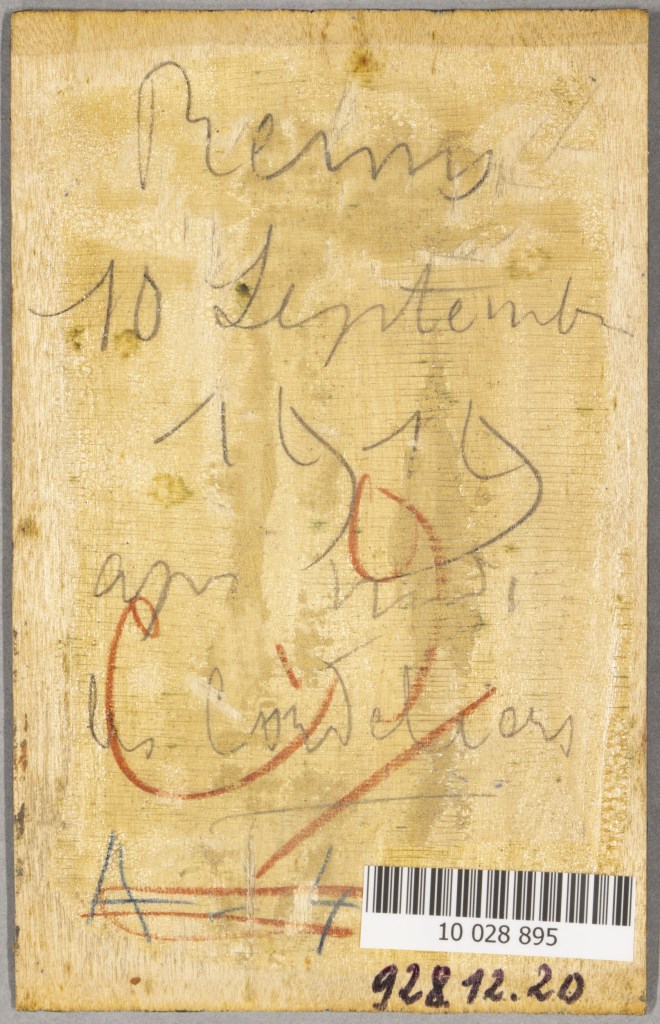 Reims
10 Septembre
1919
après midi
les Cordeliers
10 028 895
928.12.20